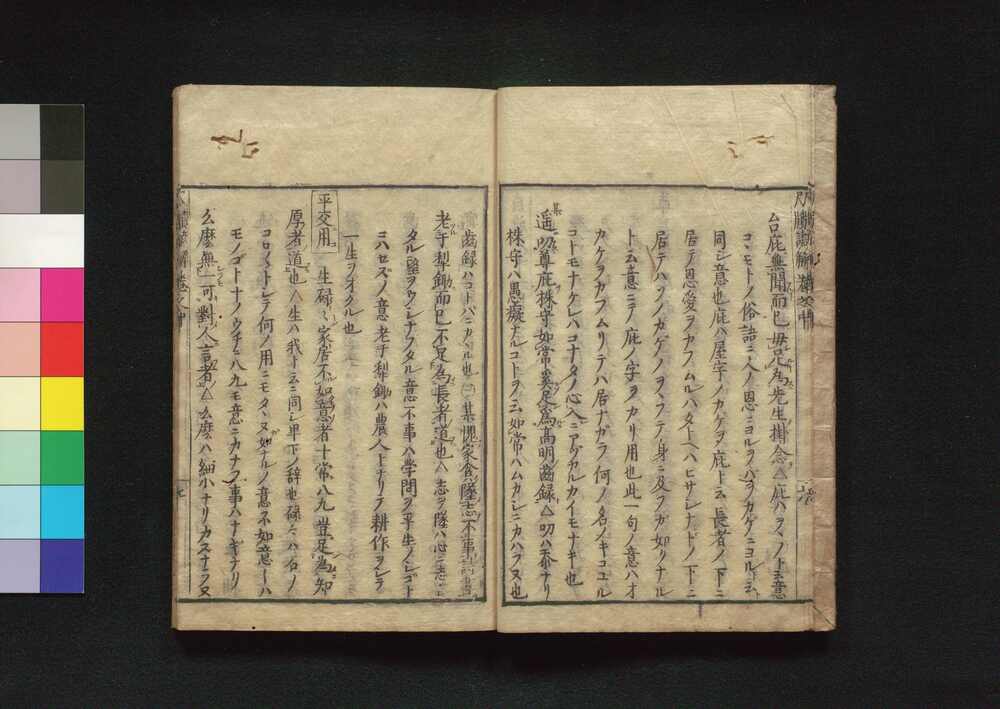 台庇無聞而已毋兄為先生掛念△庇ハヲヽノト云意
コヽモトノ俗語ニ人ノ恩ニヨルヲハヲカゲニヨルト云
同シ意也庇ハ屋字ノカゲヲ庇ト云長者ノ下ニ
居テ恩愛ヲカフムルハタトヘハヒサシナドノ下ニ
居テハソノカゲノヲヽフテノ身ニ及フガ如クナル
ト云意ニテ庇ノ字ヲカリ用也此一句ノ意ハオ
カケヲカフムリテハ居ナガラ何ノ名ノキコユル
コトモナケレハコナタノ心入ニアゲカルカイモナキ也
遥叨尊庇株守如常奚足為高明齒録△叨ハ忝ナリ
株守ハ愚癡ナルコトヲ云如常ハムカシニカハラヌ也
齒録ハコトバニカヽル也 某愧家貪墜志不事詩書
老于犁鋤而已不足為長者道也△志ヲ墜ハ心ニ志シ
タル望ヲウシナフタル意不事ハ學問ヲ平生ノシゴト
ニハセズノ意老于犁鋤ハ農人トナリテ耕作ヲシテ
一生ヲオクル也
平交用 生碌々家居不如意者十常八九豈足為知
厚者道也△生ハ我ト云ニ同シ卑下ノ辞也碌々ハ石ノ
コロ〱トシテ何ノ用ニモタヽヌ如ナルノ意不如意トハ
モノゴト十ノウチニ八九モ意ニカナフ事ハナキナリ
么麼無一可對人言者△么麼ハ細小ナリカスナラヌ